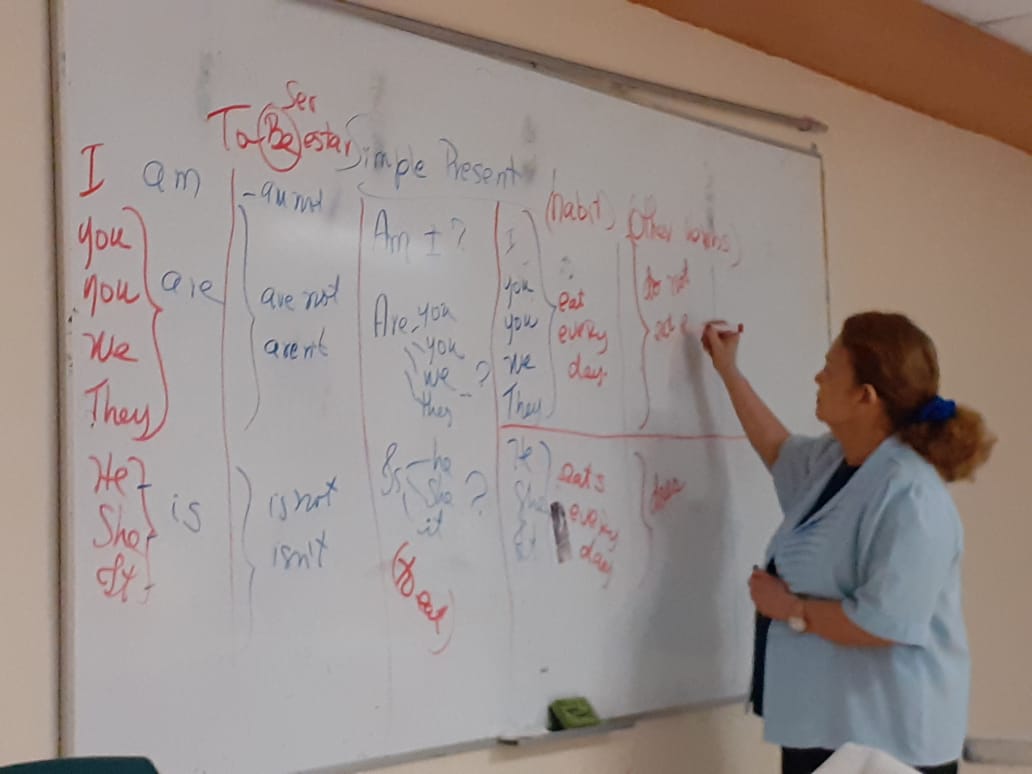 Ser
To Be estar
Simple Present
(habit) (Other verbs)
I am
you
you
We
They
are
He
She
It
is
- am not
are not
aren't
is not
isn't
Am I?
Are you
you
we
they
?
Is he
she
it
?
(to eat)
I
you
you
We
They
eat
every
day.
He
She
It
eats
every
day
do not